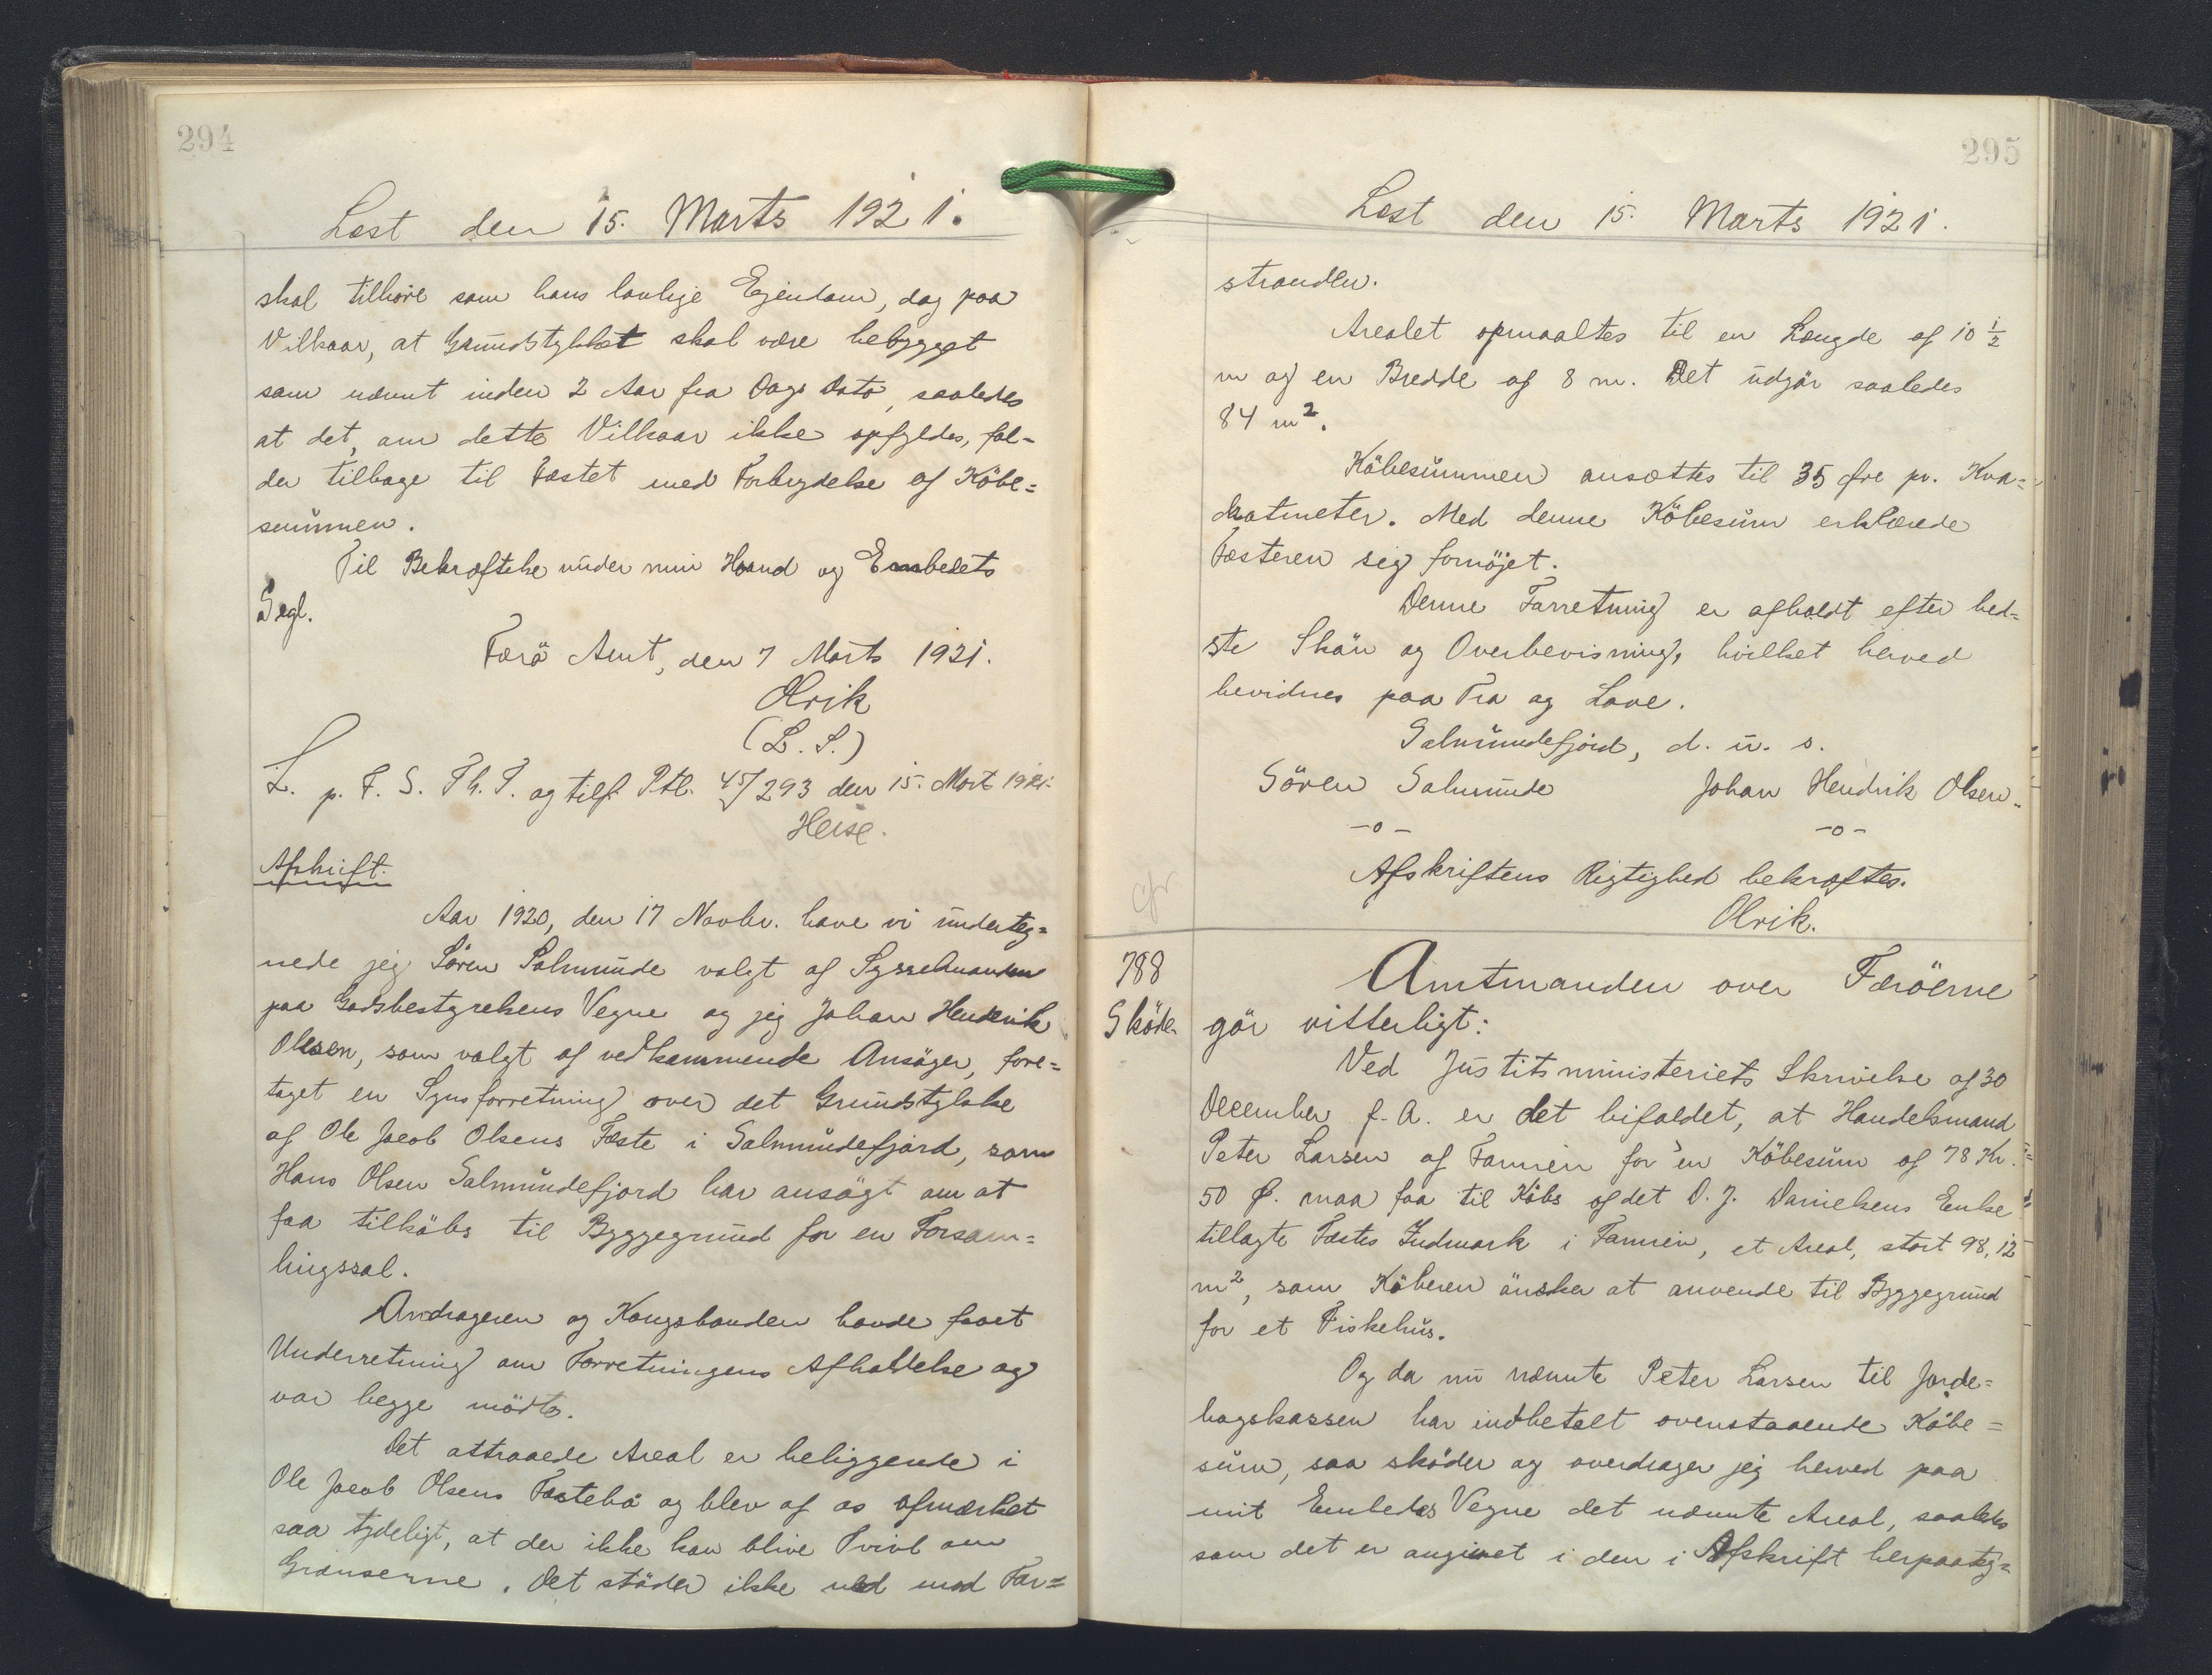 294
Læst den 15. Marts 1921.
skal tilhøre som hans lovlige Ejendom, dog paa
Vilkaar, at Grundstykket skal være bebygget
som nævnt inden 2 Aar fra Dags Dato, saaledes
at det, om dette Vilkaar ikke opfyldes, fal=
der tilbage til Fæstet med Forbrydelse af Købe=
summen.
Til Bekræftelse under min Haand og Embedets
Segl.
Færö Amt, den 7 Marts 1921.
Olrik
(L. S.)
L. p. F. S. Th. T. og tilf. Ptl. 45/293 den 15. Mart 1921.
Heise.
Afskrift.
Aar 1920, den 17 Novbr. have vi underteg=
nede jeg Sören Salmunde valgt af Sysselmanden
paa Godsbestyrelsens Vegne og jeg Johan Hendrik
Olesen, som valgt af vedkommende Ansöger, fore=
taget en Synsforretning over det Grundstykke
af Ole Jacob Olsens Fæste i Salmundefjord, som
Hans Olsen Salmundefjord har ansögt om at
faa tilköbs til Byggegrund for en Forsam=
lingssal.
Andrageren og Kongsbonden havde faaet
Underretning om Forretningens Afholdelse og
var begge mödte.
Det attraaede Areal er beliggende i
Ole Jacob Olsens Fæstebö og blev af os afmærket
saa tydeligt, at der ikke kan blive Tvivl om
Grænserne. Det stöder ikke ned mod For=
295
Læst den 15. Marts 1921.
stranden.
Arealet opmaaltes til en Længde af 10 1/2
m og en Bredde af 8 m. Det udgör saaledes
84 m².
Köbesummen ansættes til 35 Øre pr. Kva=
dratmeter. Med denne Köbesum erklærede
Fæsteren sig fornöjet.
Denne Forretning er afholdt efter bed=
ste Skön og Overbevisning, hvilket herved
bevidnes paa Tro og Love.
Salmundefjord, d. u. s.
Sören Salmunde Johan Hendrik Olsen.
-o- -o-
Afskriftens Rigtighed bekræftes.
Olrik.
cfr.
788
Sköde.
Amtmanden over Færöerne
gör vitterligt:
Ved Justitsministeriets Skrivelse af 30
December f. A. er det bifaldet, at Handelsmand
Peter Larsen af Famien for en Köbesum af 78 Kr.
50 Ø. maa faa til Köbs af det D. J. Danielsens Enke
tillagte Fæstes Indmark i Famien, et Areal, stort 98,12
m², som Köberen önsker at anvende til Byggegrund
for et Fiskehus.
Og da nu nævnte Peter Larsen til Jorde=
bogskassen har indbetalt ovenstaaende Köbe=
sum, saa sköder og overdrager jeg herved paa
mit Embedes Vegne det nævnte Areal, saaledes
som det er angivet i den i Afskrift herpaateg=